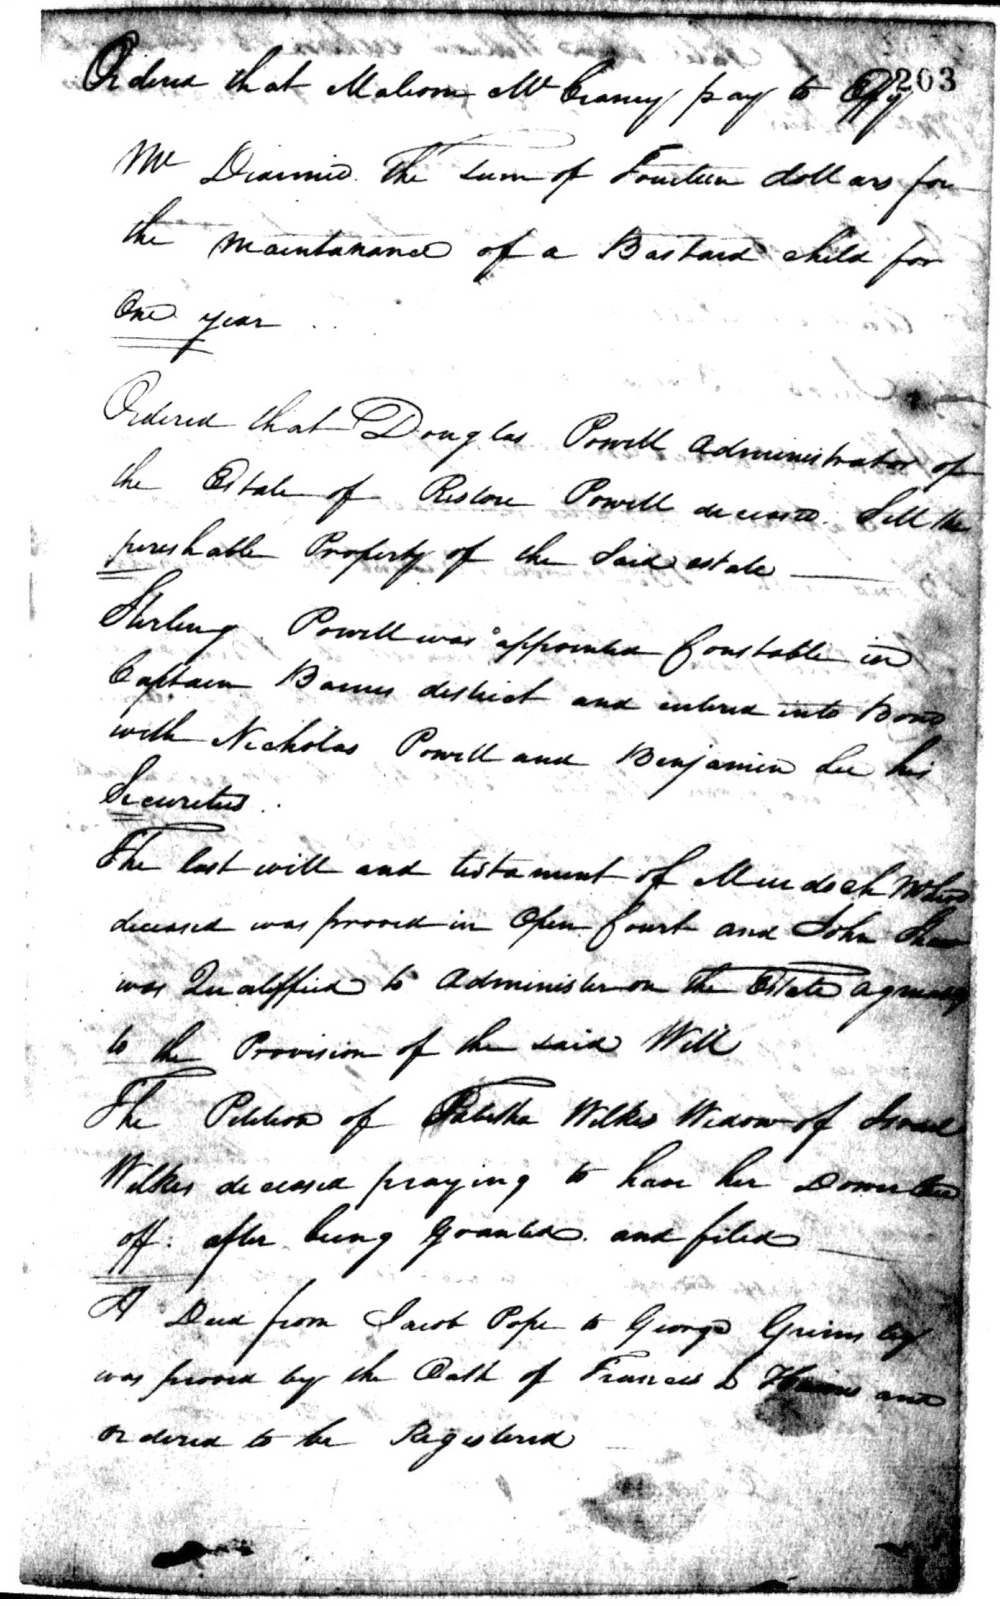 203
Ordered that Malcom Mc Craney pay to Effy
Mc Diarmid the sum of Fourteen dollars for
the maintanance of a Bastard child for
One year
Ordered that Douglas Powell administrator of
the Estate of Restore Powell deceased Sell the
perishable Property of the Said estate
Sterling Powell was appointed Constable in
Captain Barnes district and entered into Bond
with Nicholas Powell and Benjamin Lee his
Securities
The last will and testament of Murdoch
deceased was proved in Open Court and John Shaw
was Qualiffied to administer on The Estate agreeably
to the Provision of the said Will
The Petition of Tabitha Wilkes Widow of Israel
Wilkes deceased praying to have her Dower
off after being Granted and filed
A Deed from Jacob Pope to George Grimsley
was proved by the Oath of Francis and
ordered to be Registered